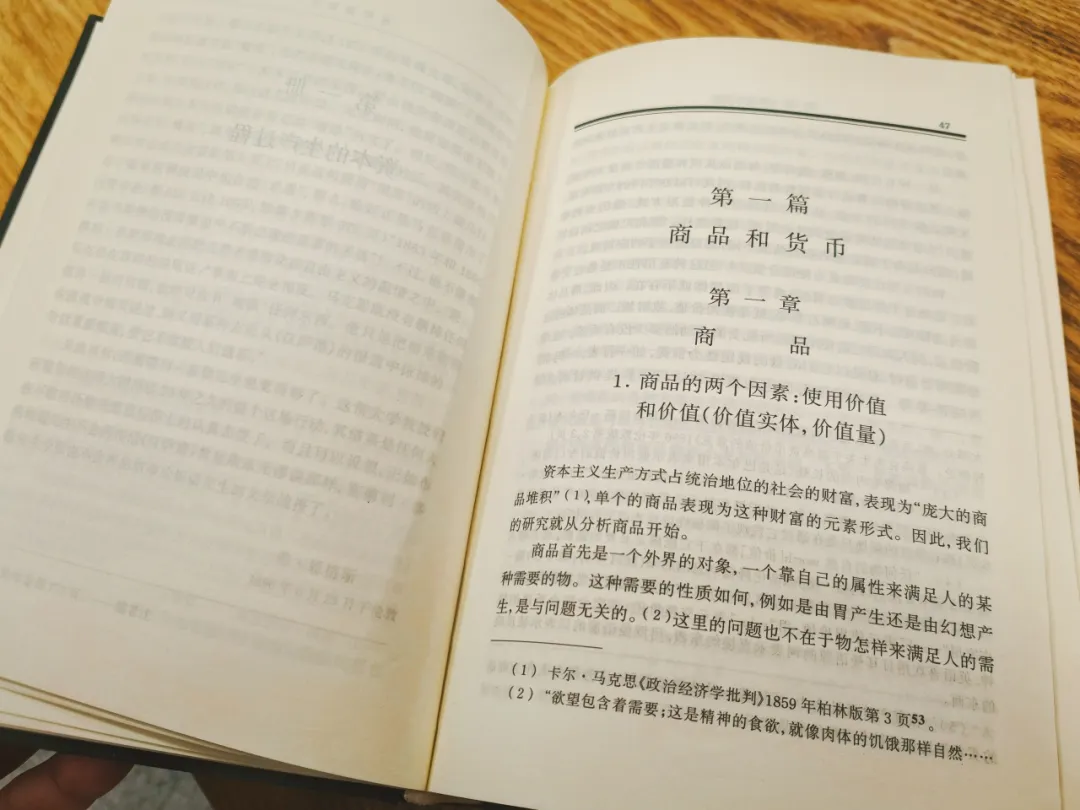 47
第一篇
商品和货币
第一章
商品
1. 商品的两个因素:使用价值
和价值(价值实体,价值量)
资本主义生产方式占统治地位的社会的财富,表现为“庞大的商
品堆积”(1),单个的商品表现为这种财富的元素形式。因此,我们
的研究就从分析商品开始。
商品首先是一个外界的对象,一个靠自己的属性来满足人的某
种需要的物。这种需要的性质如何,例如是由胃产生还是由幻想产
生,是与问题无关的。(2)这里的问题也不在于物怎样来满足人的需
(1) 卡尔·马克思《政治经济学批判》1859年柏林版第3页53。
(2) “欲望包含着需要;这是精神的食欲,就像肉体的饥饿那样自然……